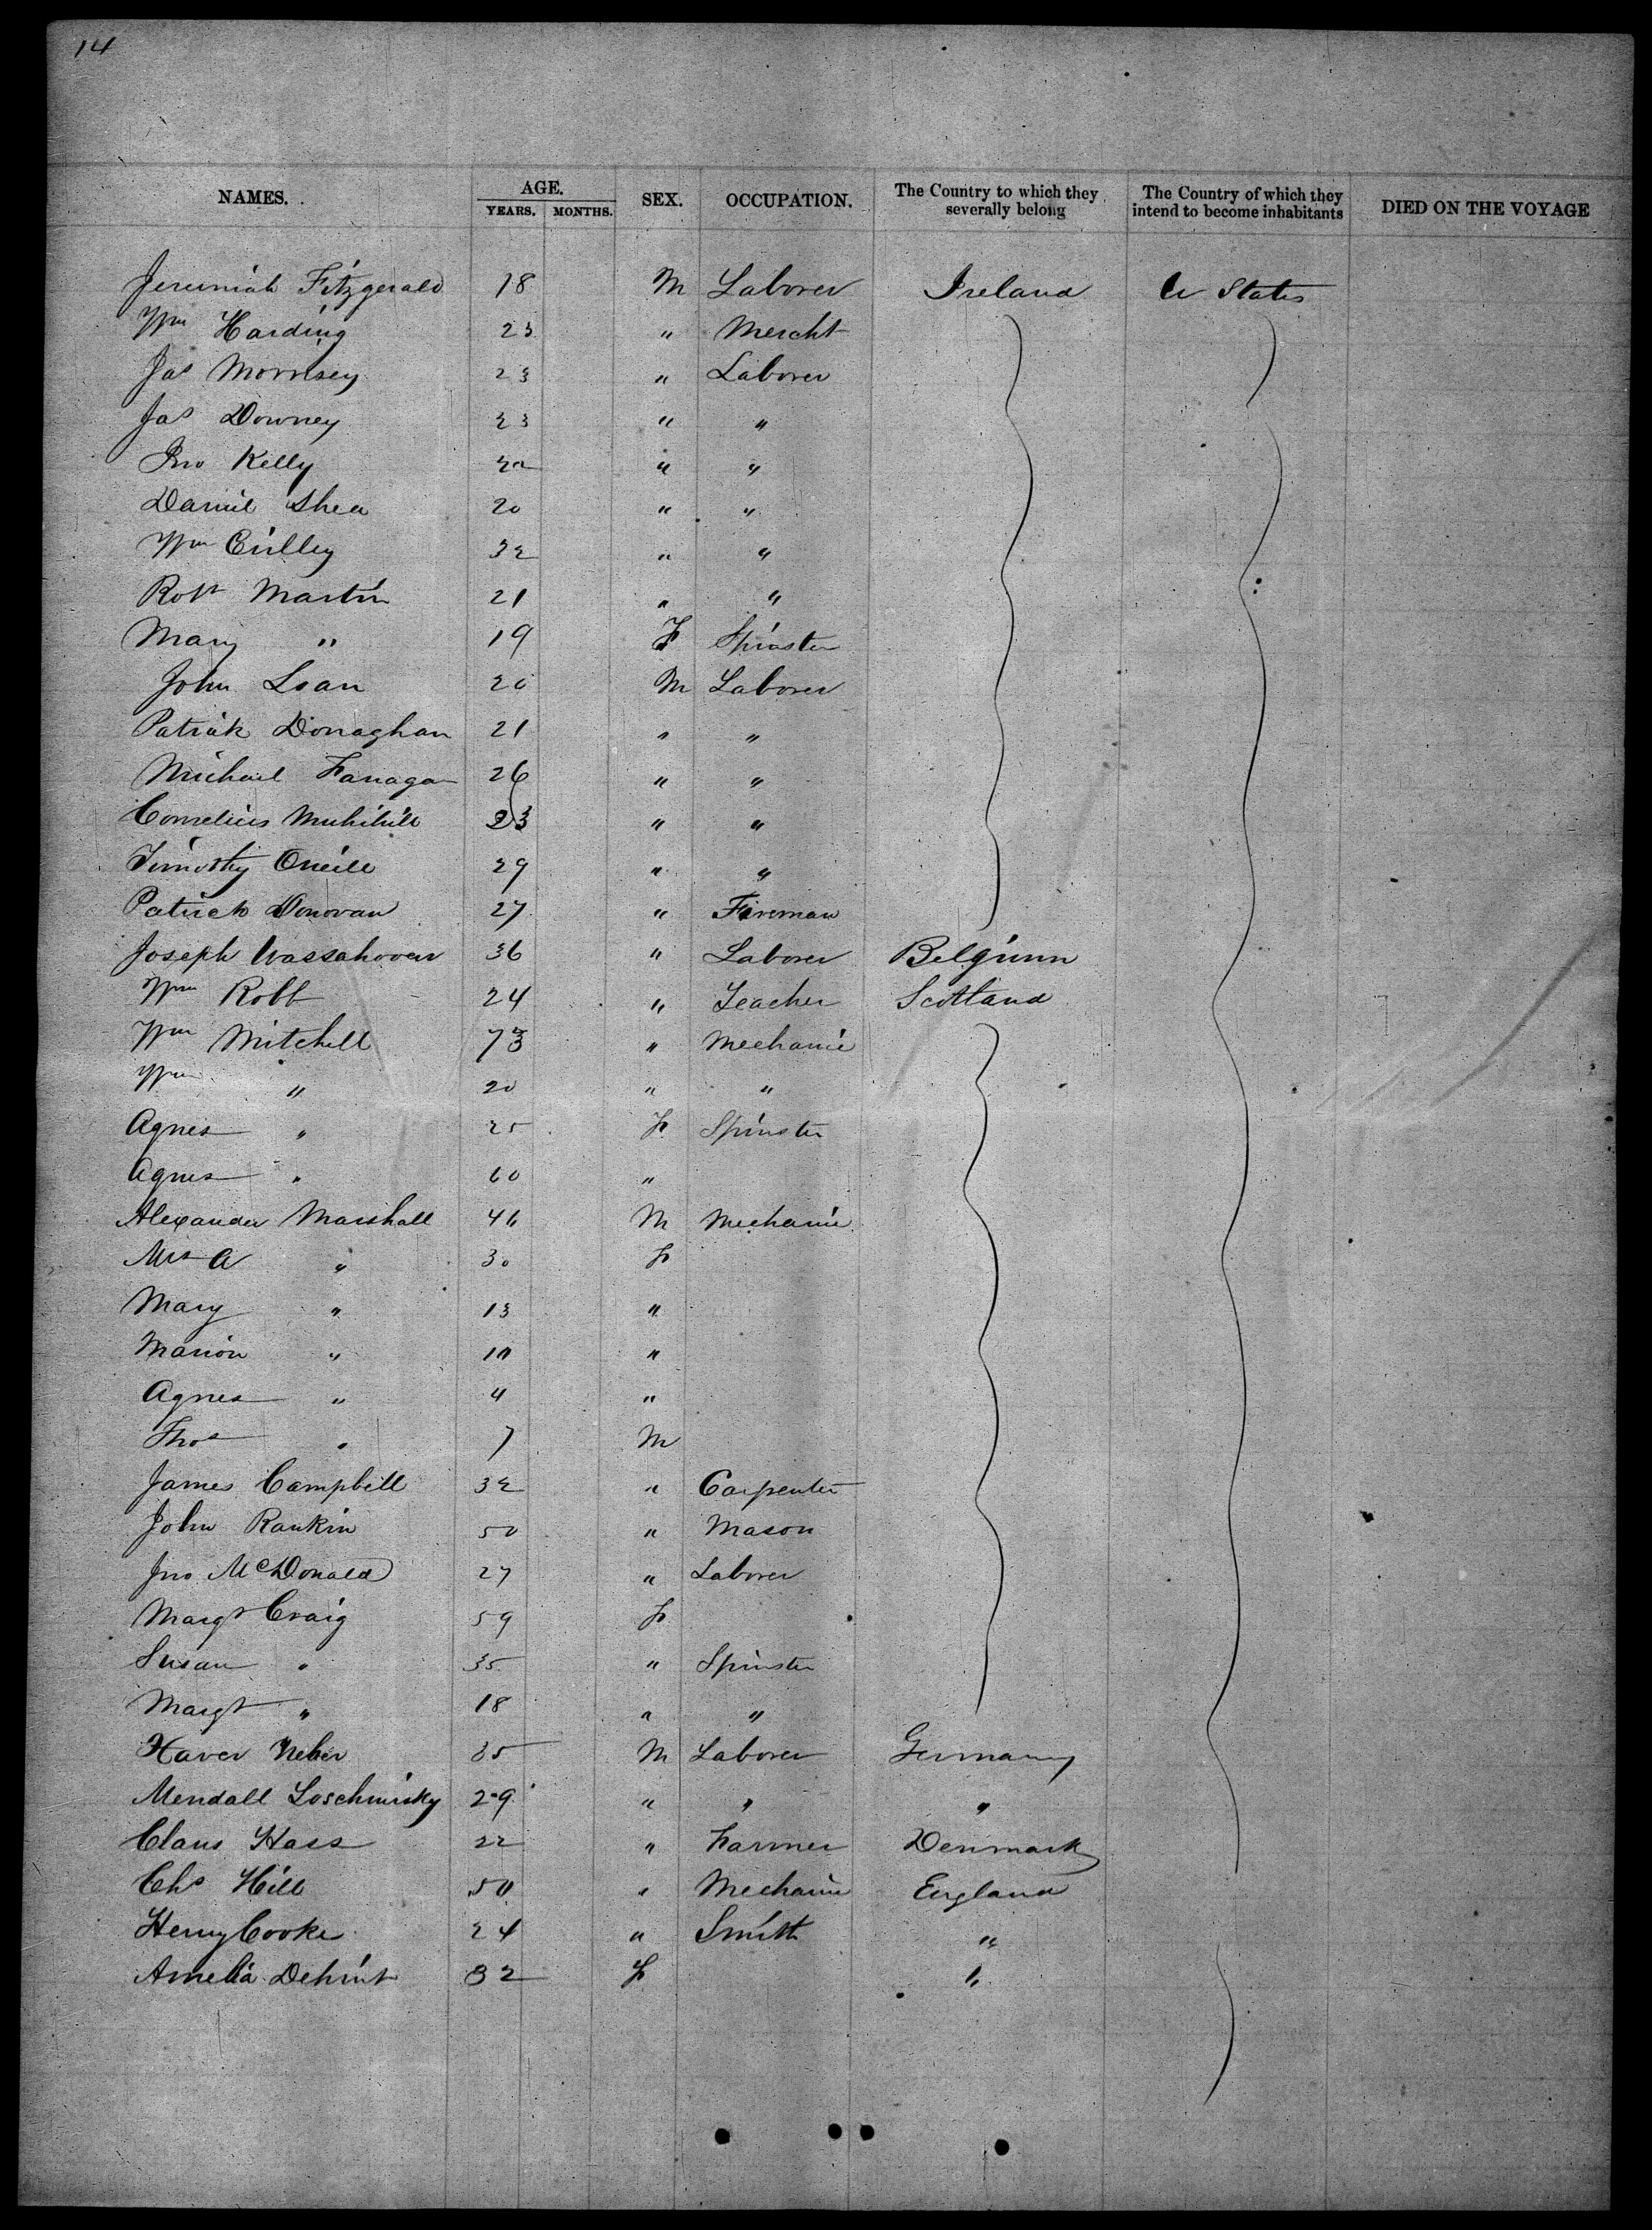 14
NAMES. AGE. SEX. OCCUPATION. The Country to which they severally belong The Country of which they intend to become inhabitants DIED ON THE VOYAGE
YEARS. MONTHS.
Jeremiah Fitzgerald 18 M Laborer Ireland U States
Wm Harding 23 " Mercht
Jas Morrisey 23 " Laborer
Jas Downey 23 " "
Jno Kelly " "
Daniel Shea 20 " "
Wm 32 " "
Robt Martin 21 " "
Mary " 19 F Spinster
John Loan 20 M Laborer
Patrick Donaghan 21 " "
Michael Fanagan 26 " "
Cornelius 23 " "
Timothy Oneill 29 " "
Patrick Donovan 27 " Fireman
Joseph Wassahoven 36 " Laborer Belgium
Wm Robb 24 " Teacher Scotland
Wm Mitchell 73 " Mechanic
Wm " 20 " "
Agnes " 25 F Spinster
Agnes " 60 "
Alexander Marshall 46 M Mechanic
Mrs A " 30 F
Mary " 13 "
Marion " "
Agnes " 4 "
Thos " 7 M
James Campbell 32 " Carpenter
John Rankin 50 " Mason
Jno McDonald 27 " Laborer
Margt Craig 59 F
Susan " 35 " Spinster
Margt " 18 " "
Xaver Neher 35 M Laborer Germany
Mendall 29 " " "
Claus Hass 22 " Farmer Denmark
Chs Hill 50 " Mechanic England
Henry Cooke 24 " Smith "
Amelia 32 F "